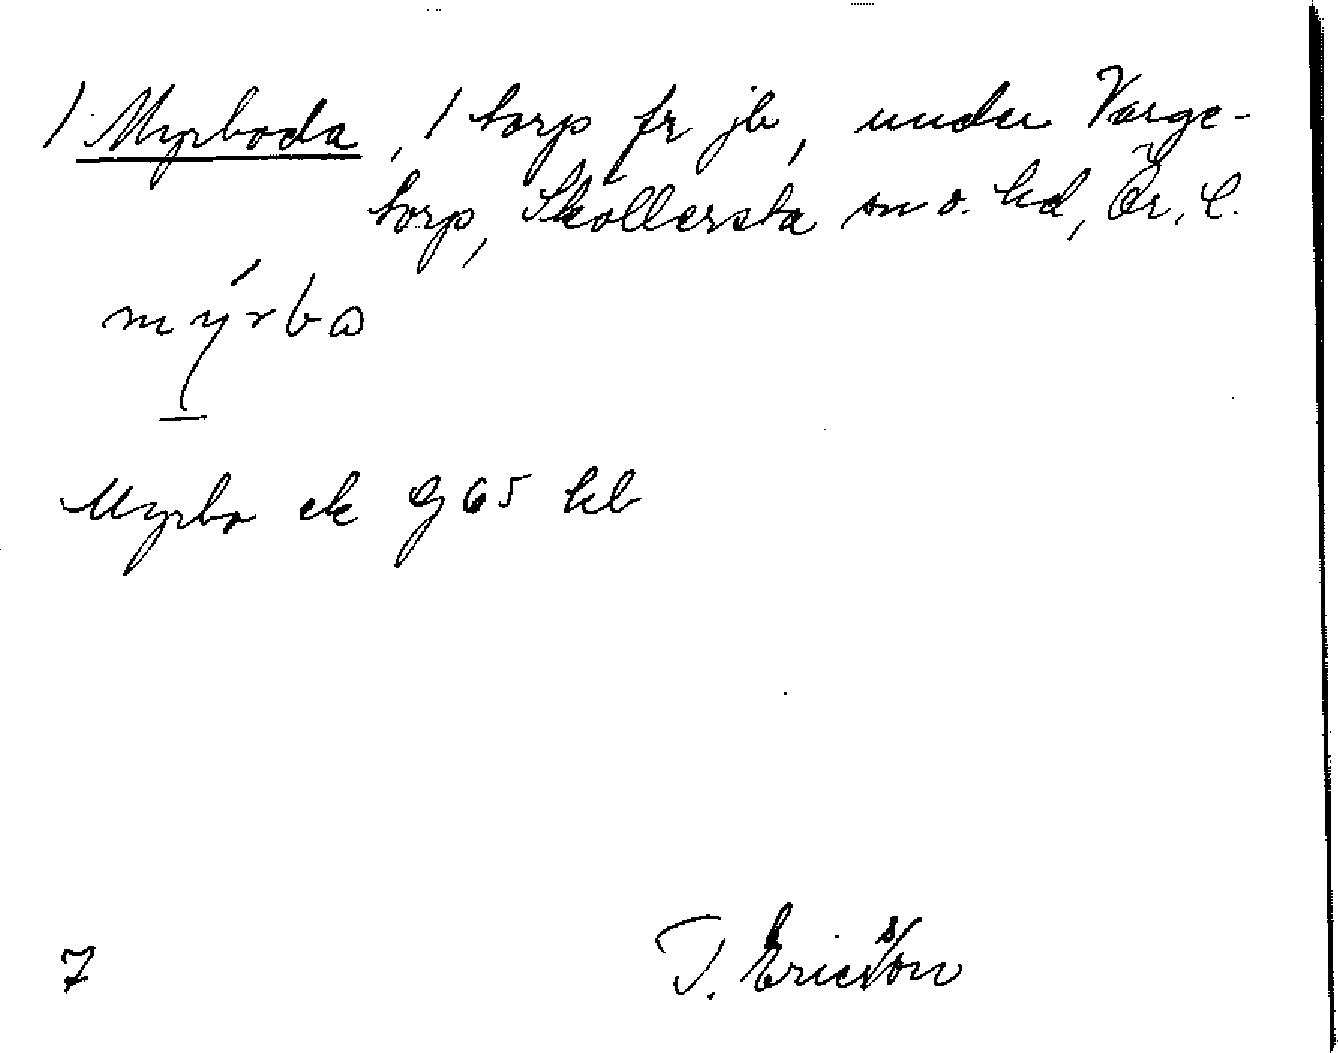 / Myrboda, 1 torp fr jb, under Varge-
torp, Sköllersta sn o. hd, Ör. l.
mýrbω
Myrbo ek G 65 hb
7 T. Ericsson